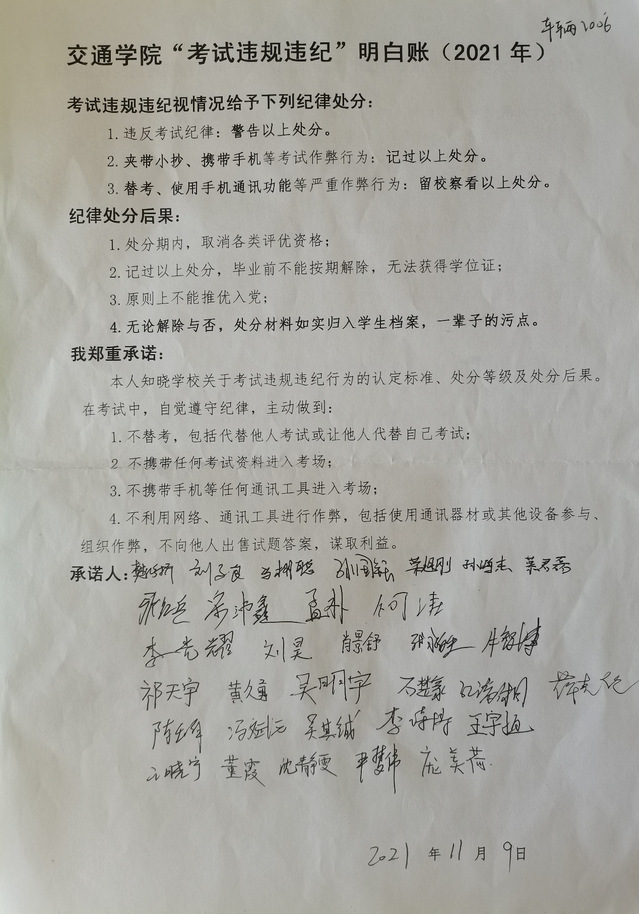 车辆2006
交通学院“考试违规违纪”明白账（2021 年）
考试违规违纪视情况给予下列纪律处分：
1. 违反考试纪律：警告以上处分。
2. 夹带小抄、携带手机等考试作弊行为：记过以上处分。
3. 替考、使用手机通讯功能等严重作弊行为：留校察看以上处分。
纪律处分后果：
1. 处分期内，取消各类评优资格；
2. 记过以上处分，毕业前不能按期解除，无法获得学位证；
3. 原则上不能推优入党；
4. 无论解除与否，处分材料如实归入学生档案，一辈子的污点。
我郑重承诺：
本人知晓学校关于考试违规违纪行为的认定标准、处分等级及处分后果。
在考试中，自觉遵守纪律，主动做到：
1. 不替考，包括代替他人考试或让他人代替自己考试；
2 不携带任何考试资料进入考场；
3. 不携带手机等任何通讯工具进入考场；
4. 不利用网络、通讯工具进行作弊，包括使用通讯器材或其他设备参与、
组织作弊，不向他人出售试题答案，谋取利益。
承诺人：
孟朴 何洁
李光耀 刘昊 肖景舒
祁天宇 黄久富 吴明宇
冯斌元 吴其绒 李诗琦 王宇恒
王晓宁 董霞 沈静雯 尹梦伟 庞美荷
2021 年 11 月 9 日